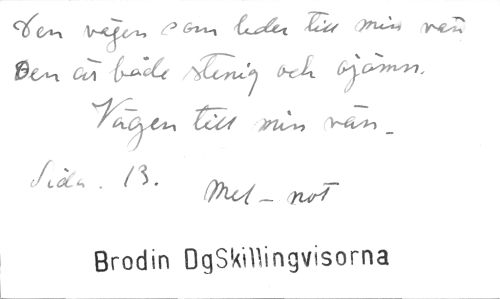 Den vägen som leder till min vän
Den är både stenig och ojämn.
Vägen till min vän_
Sida. 13.
Mel - not
Brodin DgSkillingvisorna